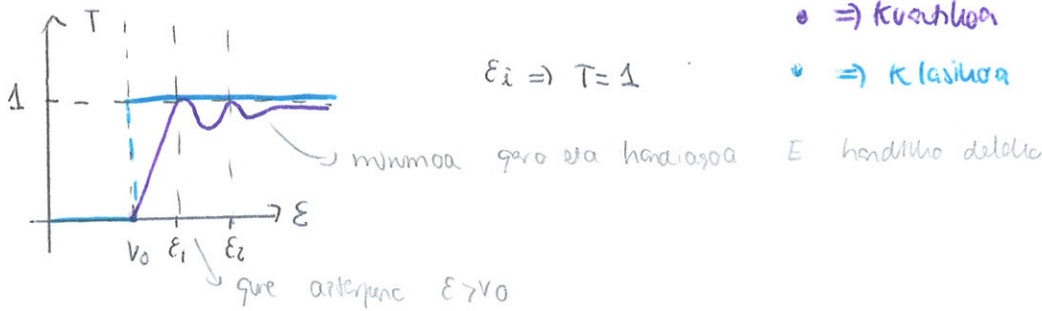 T
• ⇒ Kvantikoa
εi ⇒ T = 1
• ⇒ Klasikoa
1
minimoa gero eta handiagoa E handitiko delako
ε
V0 ε1 ε2
gure azterpena ε > V0